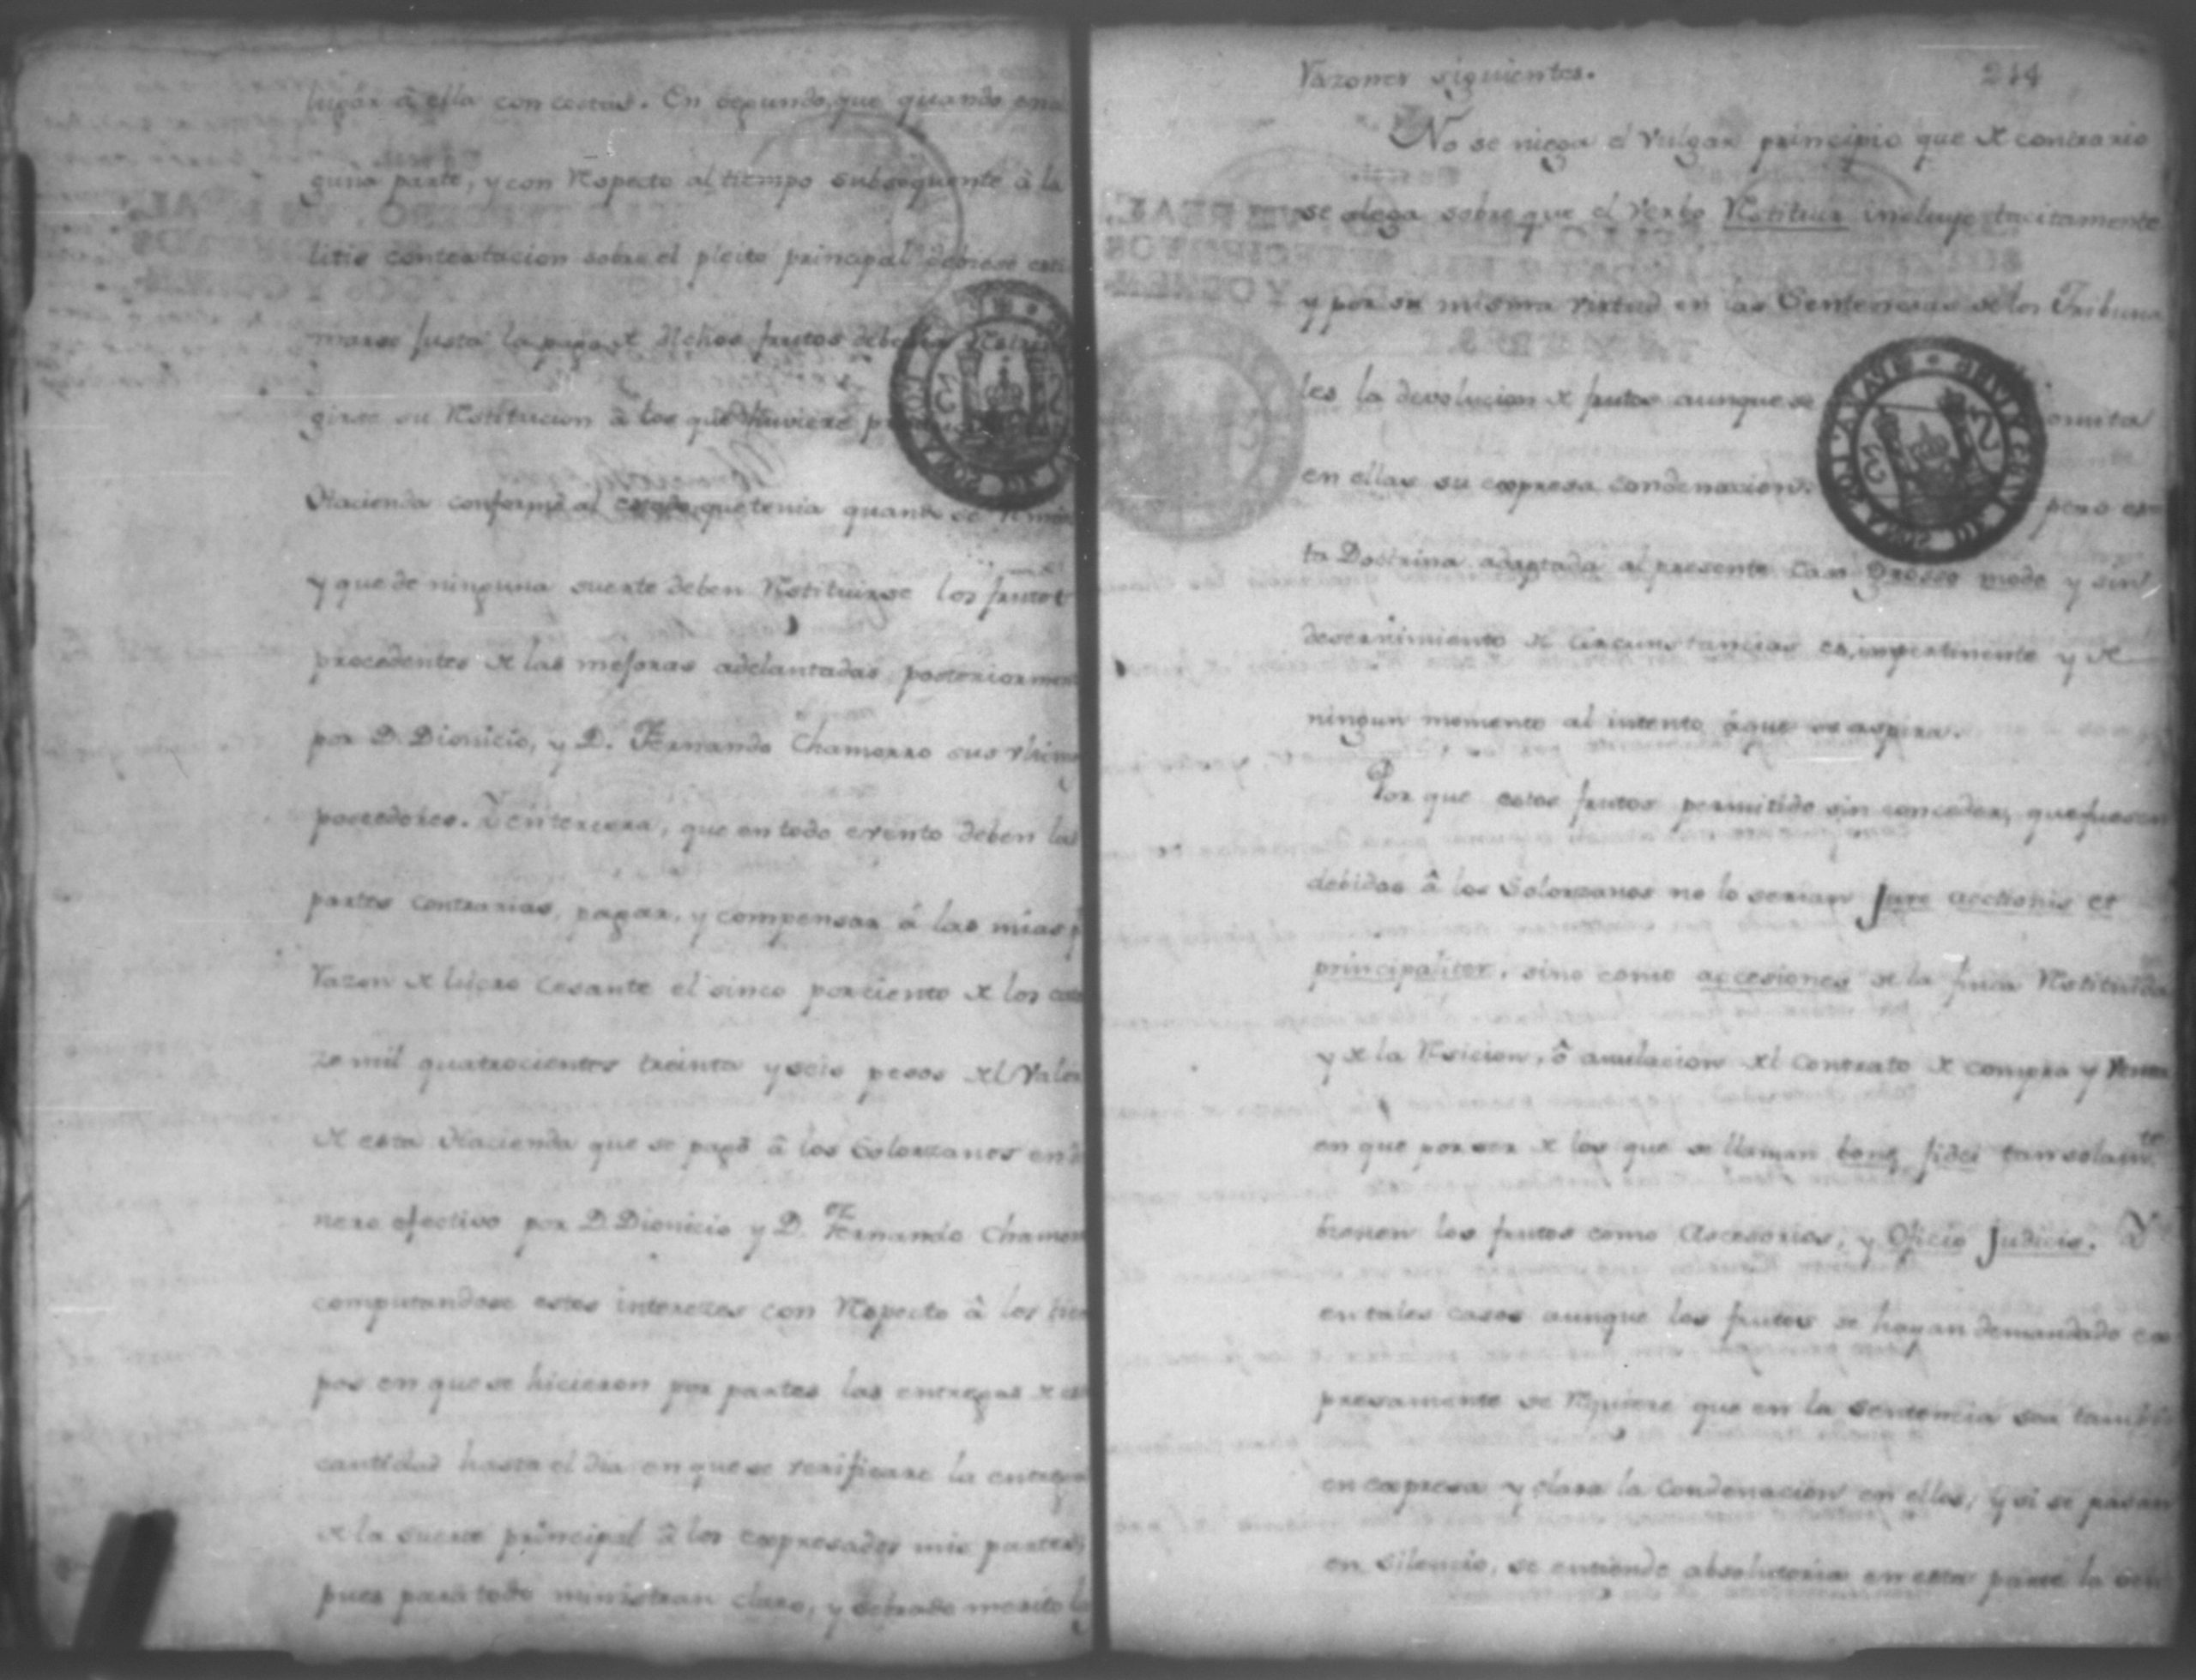 lugar â ella con costas. En segundo, que quando en al
guna parte, y con Respecto al tiempo subsequente â la
litis contestacion sobre el pleito principal debiese esti
marse justa la paga de dichos frutos deberia
girse su Restitucion â los que huviere
Hacienda conforme al estado que tenia quando se
y que de ninguna suerte deben Restituirse los frutos
procedentes de las mejoras adelantadas posteriorment
por D. Dionicio, y D. Fernando Chamorro sus ultimos
poseedores. Y en tercera, que en todo evento deben las
partes contrarias, pagar, y compensar â las mias p
Razon de lucro cesante el sinco por ciento de los cator
ze mil quatrocientos treinta y seis pesos del Valor
de esta Hacienda que se pagô â los Solorzanos en di
nero efectivo por D. Dionicio y D. Fernando Chamorr
computandose estos interezes con Respecto â los tiem
pos en que se hicieron por partes las entregas de esta
cantidad hasta el dia en que se verificare la entrega
de la suerte principal â los expresados mis partes;
pues para todo ministran claro, y sobrado merito la
Razones siguientes.
244
No se niega el vulgar principio que de contrario
se alega sobre que el verbo Restituir incluye tacitamente
y por su misma virtud en las Sentencias de los Tribuna
les la devolucion de frutos aunque se omita
en ellas su expresa condenacion. pero es
ta Doctrina adaptada al presente caso grosso modo y sin
desernimiento de circunstancias es, impertinente y de
ningun momento al intento â que se aspira.
Por que estos frutos permitido sin conceder, que fuesen
debidos â los Solorzanos no lo serian jure acctionis et
principaliter, sino como accesiones de la finca Restituida
y de la Resicion, ô anulacion del contrato de compra y Venta
en que por ser de los que se llaman bonę fidei tan solamte
bienen los frutos como Accesorios, y Oficio judicis. Y
en tales casos aunque los frutos se hayan demandado ex
presamente se Requiere que en la Sentencia sea tambi
en expresa y clara la Condenacion en ellos, y si se pasan
en silencio, se entiende absolutoria en esta parte la sen